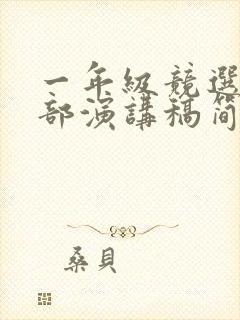 一年級競選
部演講稿簡
桑貝